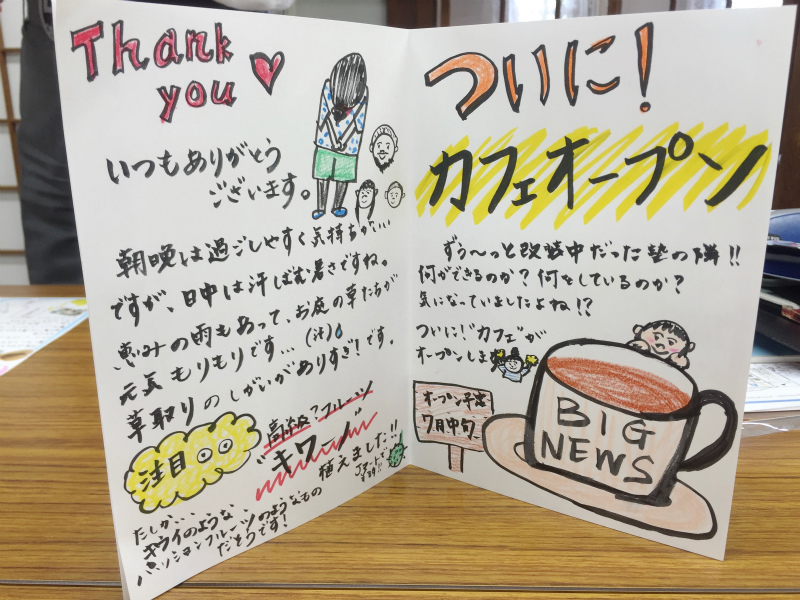 Thank
you
いつもありがとう
ございます。
朝晩は過ごしやすく気持ちがいい
ですが、日中は汗ばむ暑さですね。
恵みの雨もあって、お庭の草たちが
元気もりもりです…(汗)
草取りのしがいがありすぎ!です。
注目
高級?フルーツ
"キワーノ"
植えました!!
たしか、、
キウイのような、
パッションフルーツのようなもの
だそうです!
ついに!
カフェオープン
ずぅ〜っと改装中だった塾の隣!!
何ができるのか?何をしているのか?
気になっていましたよね!?
ついに!"カフェ"が
オープンします
オープン予定
7月中旬
BIG
NEWS